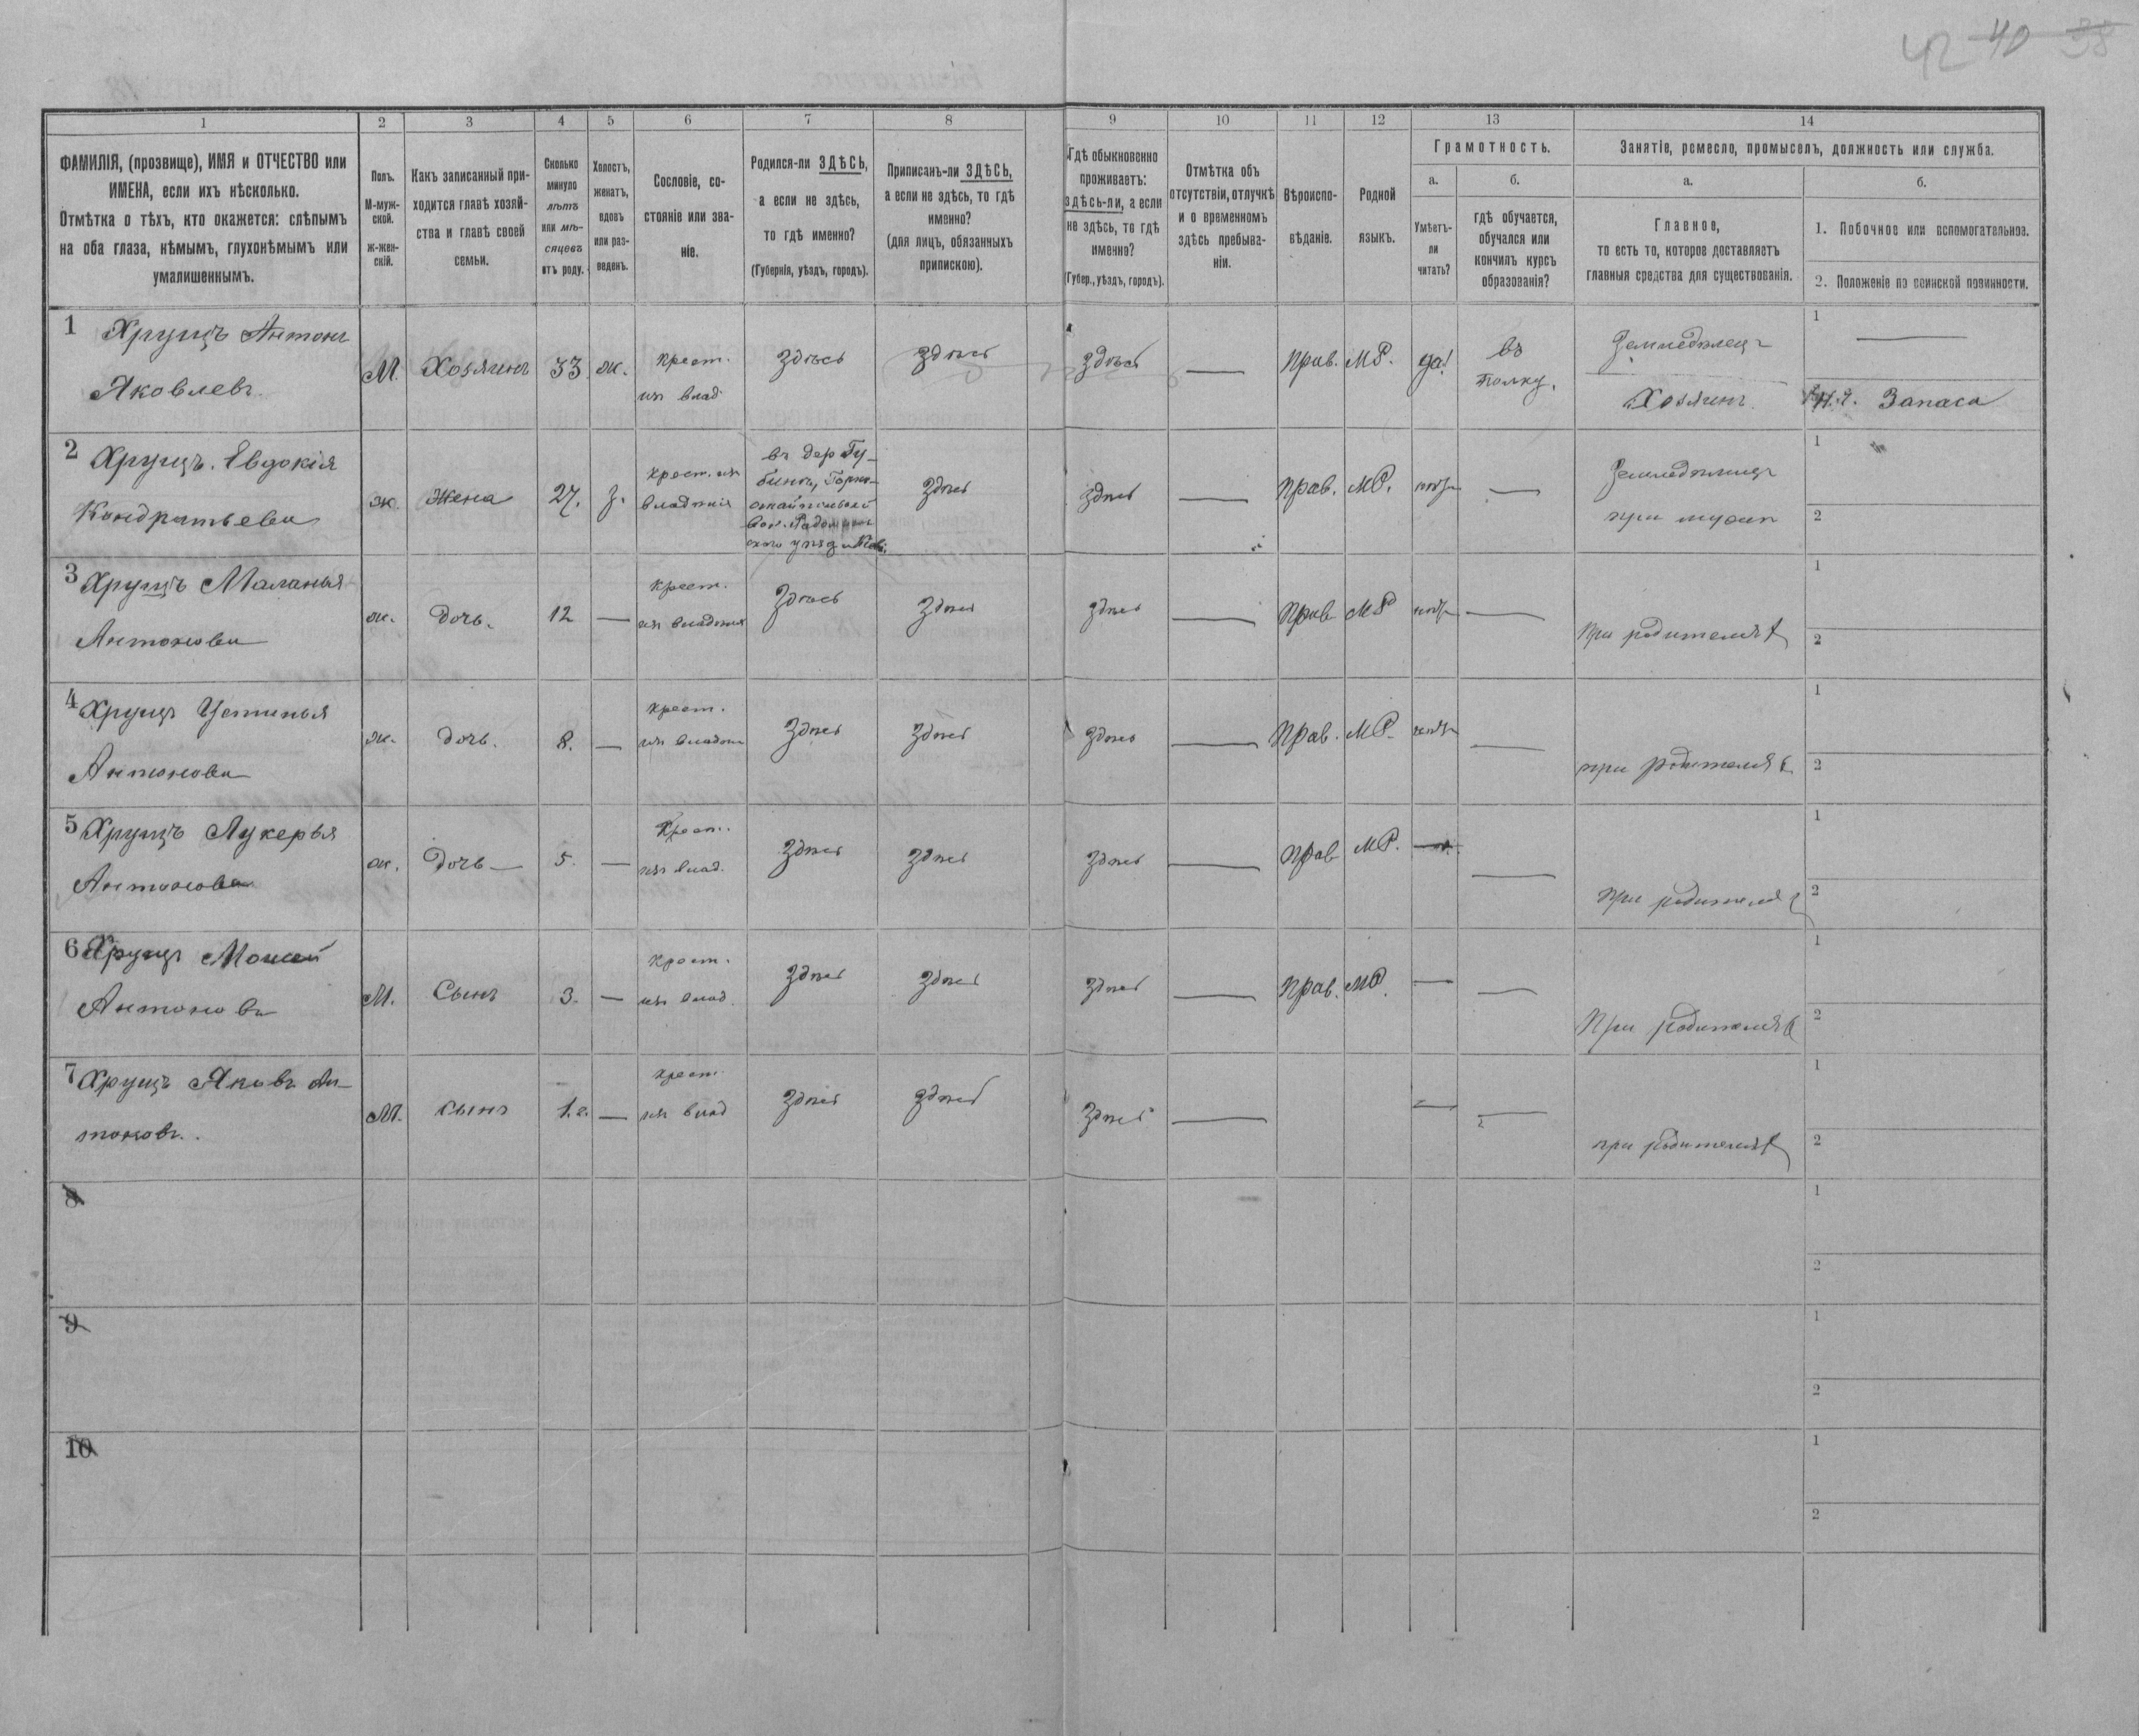 42 40 38
1 2 3 4 5 6 7 8 9 10 11 12 13 14
ФАМИЛІЯ, (прозвище), ИМЯ и ОТЧЕСТВО или
ИМЕНА, если ихъ нѣсколько.
Отмѣтка о тѣхъ, кто окажется: слѣпымъ
на оба глаза, нѣмымъ, глухонѣмымъ или
умалишеннымъ.
Полъ.
М-муж-
ской.
ж-жен-
скій.
Какъ записанный при-
ходится главѣ хозяй-
ства и главѣ своей
семьи.
Сколько
минуло
лѣтъ
или мѣ-
сяцевъ
отъ роду.
Холостъ,
женатъ,
вдовъ
или раз-
веденъ.
Сословіе, со-
стояніе или зва-
ніе.
Родился-ли ЗДѢСЬ,
а если не здѣсь,
то гдѣ именно?
(Губернія, уѣздъ, городъ).
Приписанъ-ли ЗДѢСЬ,
а если не здѣсь, то гдѣ
именно?
(для лицъ, обязанныхъ
припискою).
Гдѣ обыкновенно
проживаетъ:
здѣсь-ли, а если
не здѣсь, то гдѣ
именно?
(Губер., уѣздъ, городъ).
Отмѣтка объ
отсутствіи, отлучкѣ
и о временномъ
здѣсь пребыва-
ніи.
Вѣроиспо-
вѣданіе.
Родной
языкъ.
Грамотность.
а.
Умѣетъ-
ли
читать?
б.
гдѣ обучается,
обучался или
кончилъ курсъ
образованія?
Занятіе, ремесло, промыселъ, должность или служба.
а.
Главное,
то есть то, которое доставляетъ
главныя средства для существованія.
б.
1. Побочное или вспомогательное.
2. Положеніе по воинской повинности.
1 Хрущъ Антонъ
Яковлевъ.
М. Хозяинъ 33 ж. крест.
изъ влад. здѣсь здѣсь здѣсь — Прав. М.Р. да! въ
полку.
Земледѣлецъ
Хозяинъ
1 —
Н.Ч. Запаса
2 Хрущъ. Евдокія
Кондратьева
ж. Жена 27. з. крест. изъ
владѣнія
въ дер Гу-
бинъ,
вол. Радомысль
скаго уѣзд
здѣсь здѣсь — Прав. М.Р. нѣтъ —
Земледѣлецъ
при мужѣ
1
2
3 Хрущъ Маланья
Антонова
ж. Дочь. 12 — крест.
изъ владѣнія здѣсь здѣсь здѣсь — Прав М.Р нѣтъ —
При родителяхъ
1
2
4 Хрущъ Устинья
Антонова
ж. Дочь. 8. — крест.
изъ владѣн здѣсь здѣсь здѣсь — Прав. М.Р. нѣтъ —
при родителяхъ
1
2
5 Хрущъ Лукерья
Антонова
ж. Дочь — 5. — Крест.
изъ влад. здѣсь здѣсь здѣсь — Прав М.Р. — —
При родителяхъ
1
2
6 Хрущъ Моисей
Антоновъ
М. Сынъ 3. — крест.
изъ влад. здѣсь здѣсь здѣсь — Прав. М.Р. — —
При родителяхъ
1
2
7 Хрущъ Яковъ Ан-
тоновъ.
М. сынъ 1.г. — крест
изъ влад здѣсь здѣсь здѣсь — — —
при родителяхъ
1
2
8
1
2
9
1
2
10
1
2